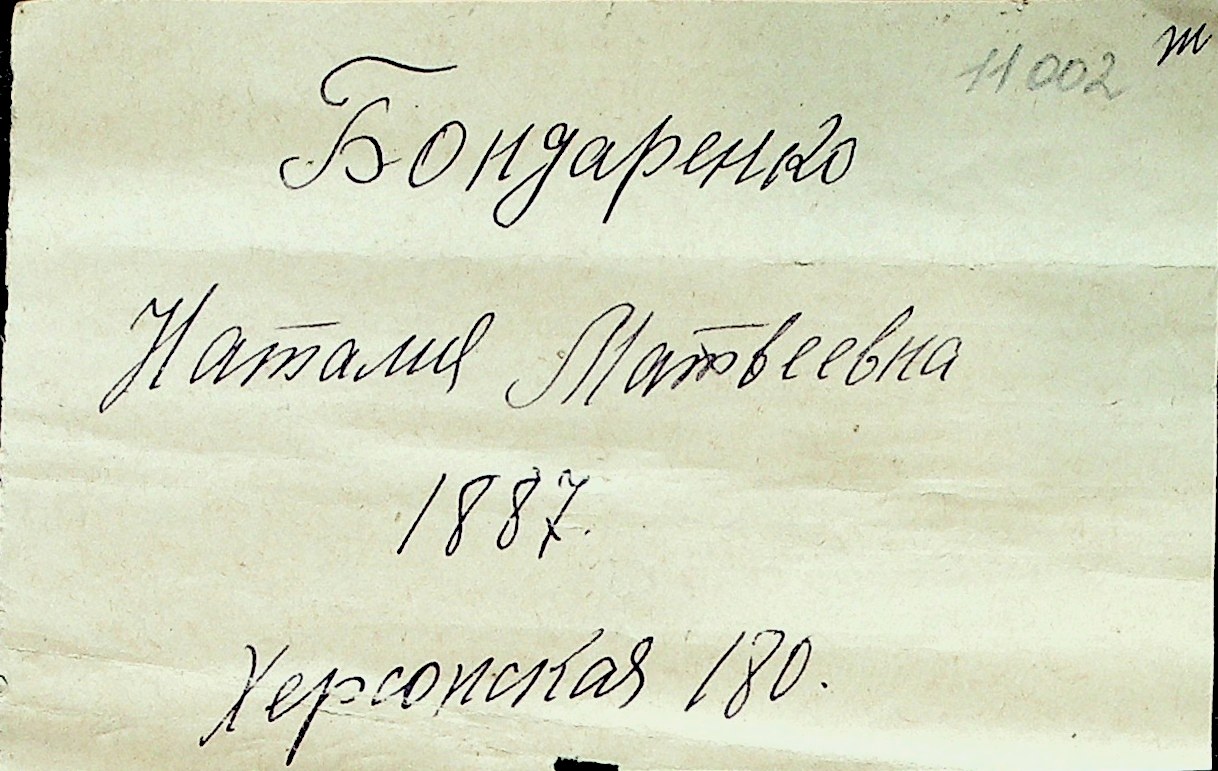 11002 т
Бондаренко
Наталия Матвеевна
1887.
Херсонская 180.